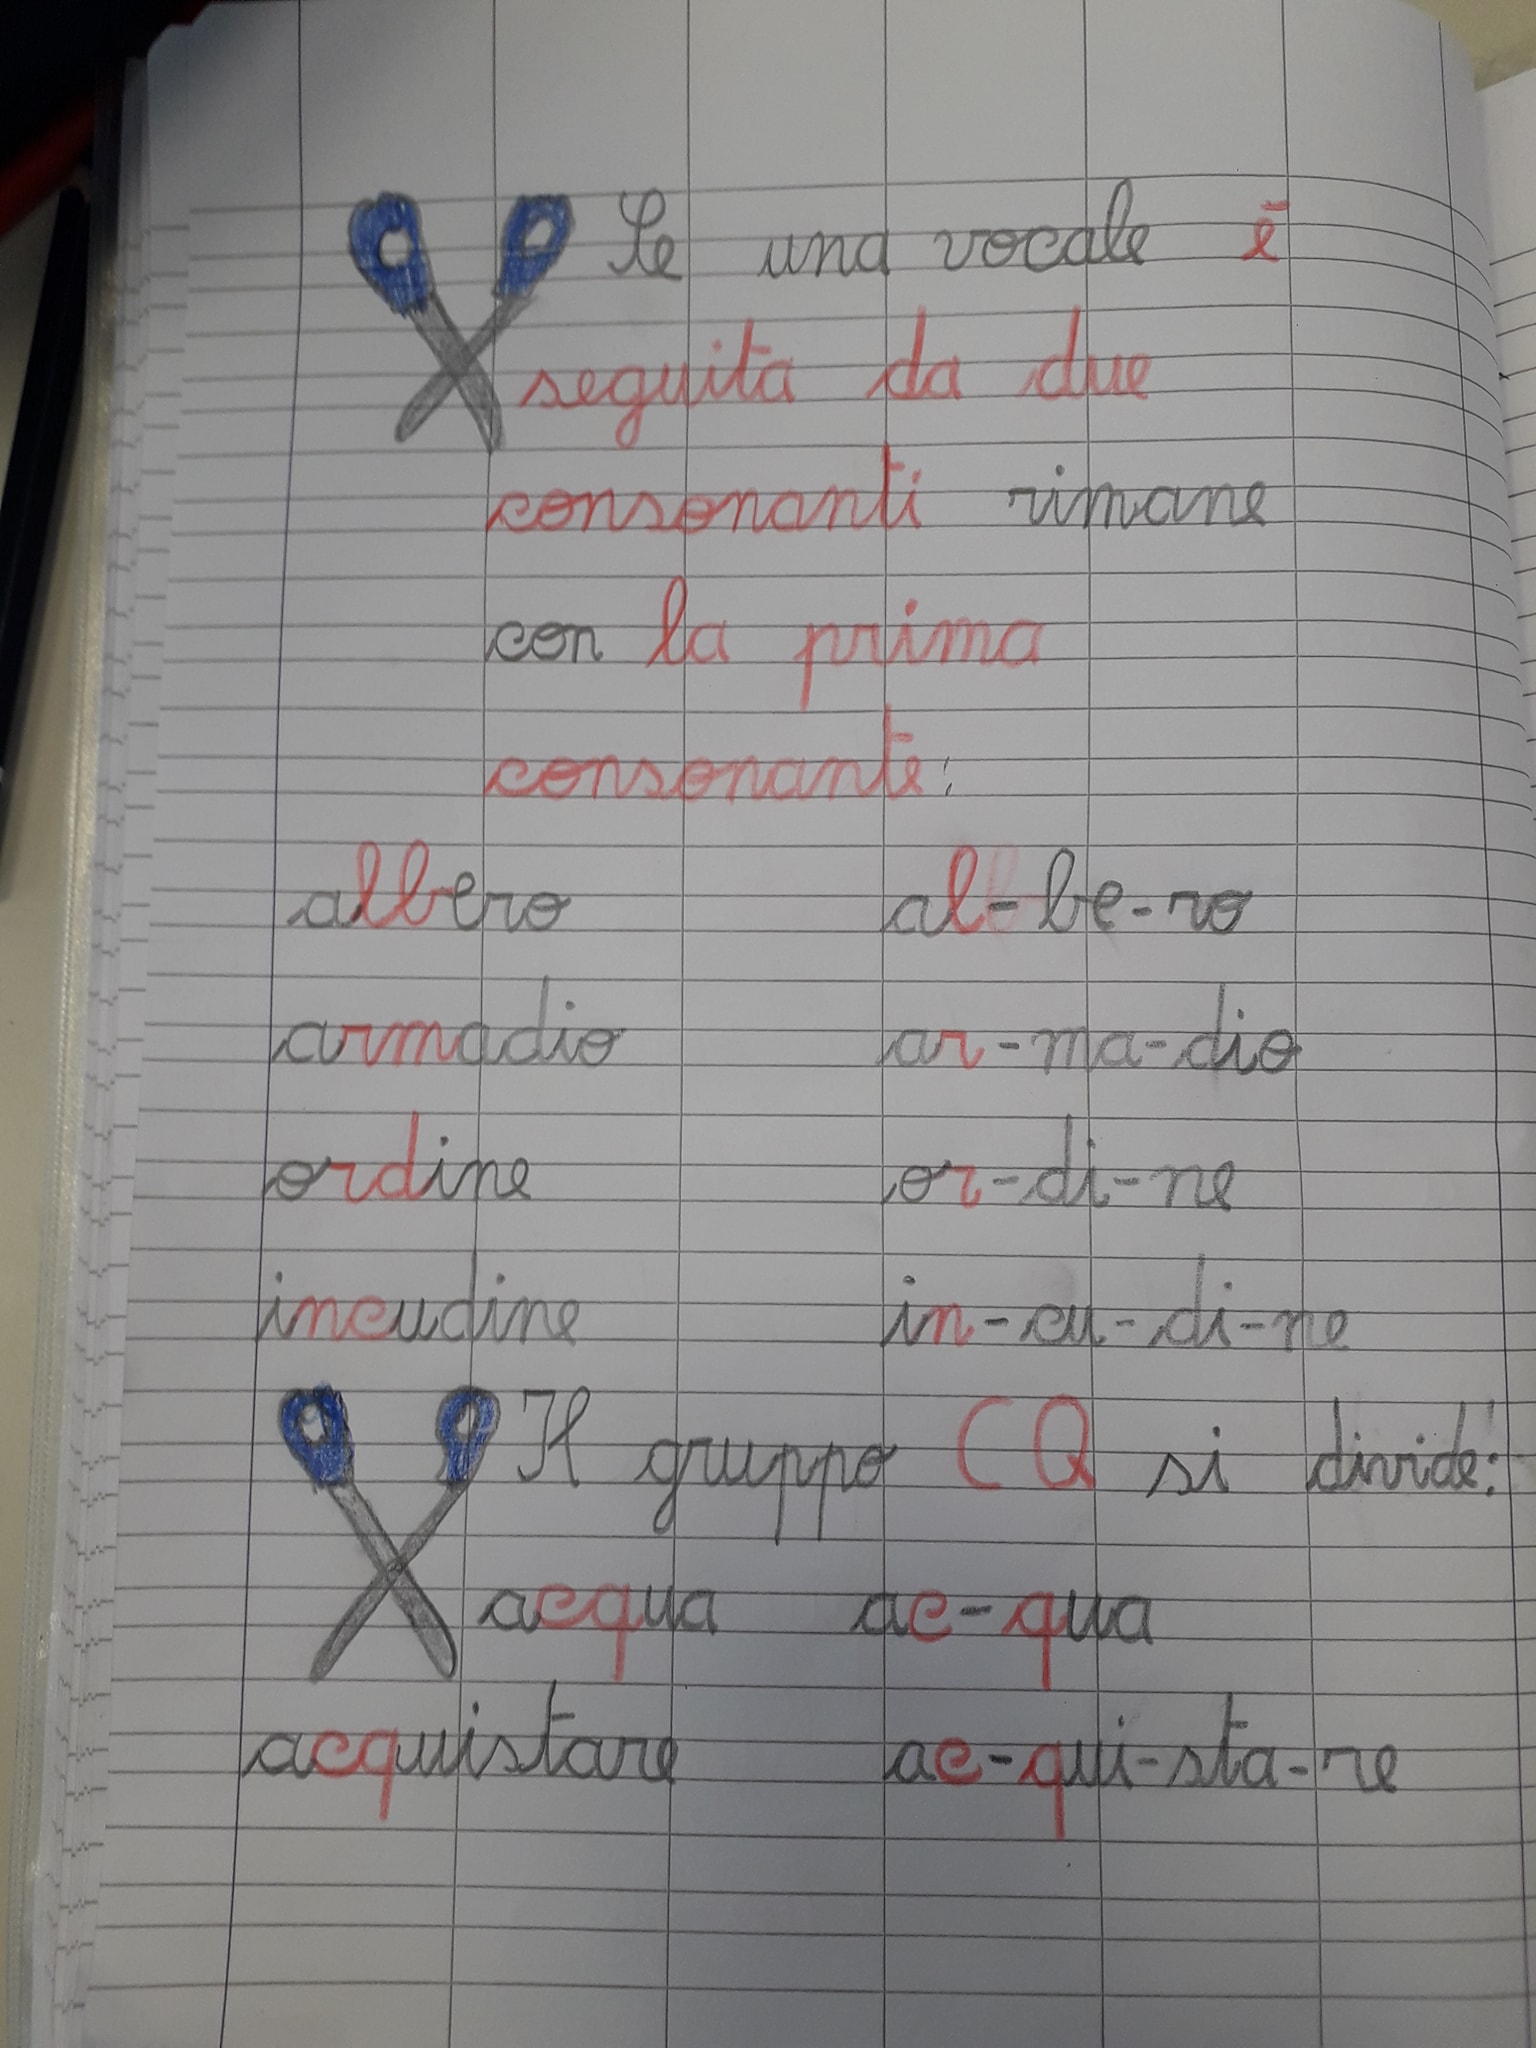 Se una vocale è
seguita da due
consonanti rimane
con la prima
consonante:
albero al-be-ro
armadio ar-ma-dio
ordine or-di-ne
incudine in-cu-di-ne
Il gruppo CQ si divide:
acqua ac-qua
acquistare ac-qui-sta-re